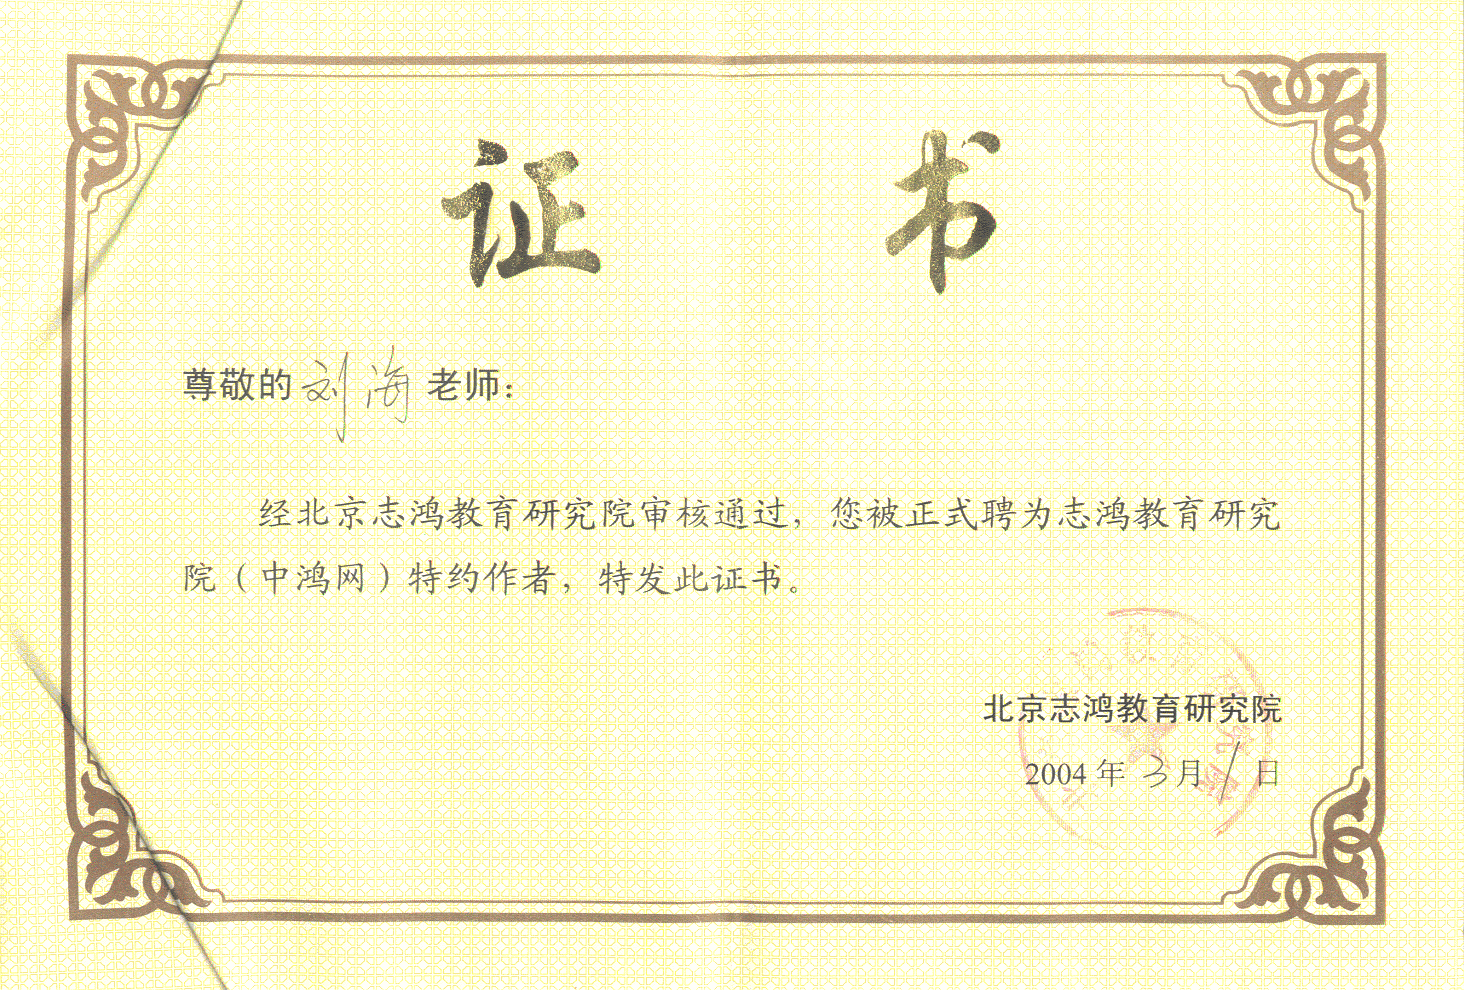 证 书
尊敬的刘海老师：
经北京志鸿教育研究院审核通过，您被正式聘为志鸿教育研究
院（中鸿网）特约作者，特发此证书。
北京志鸿教育研究院
2004 年 3 月 1 日